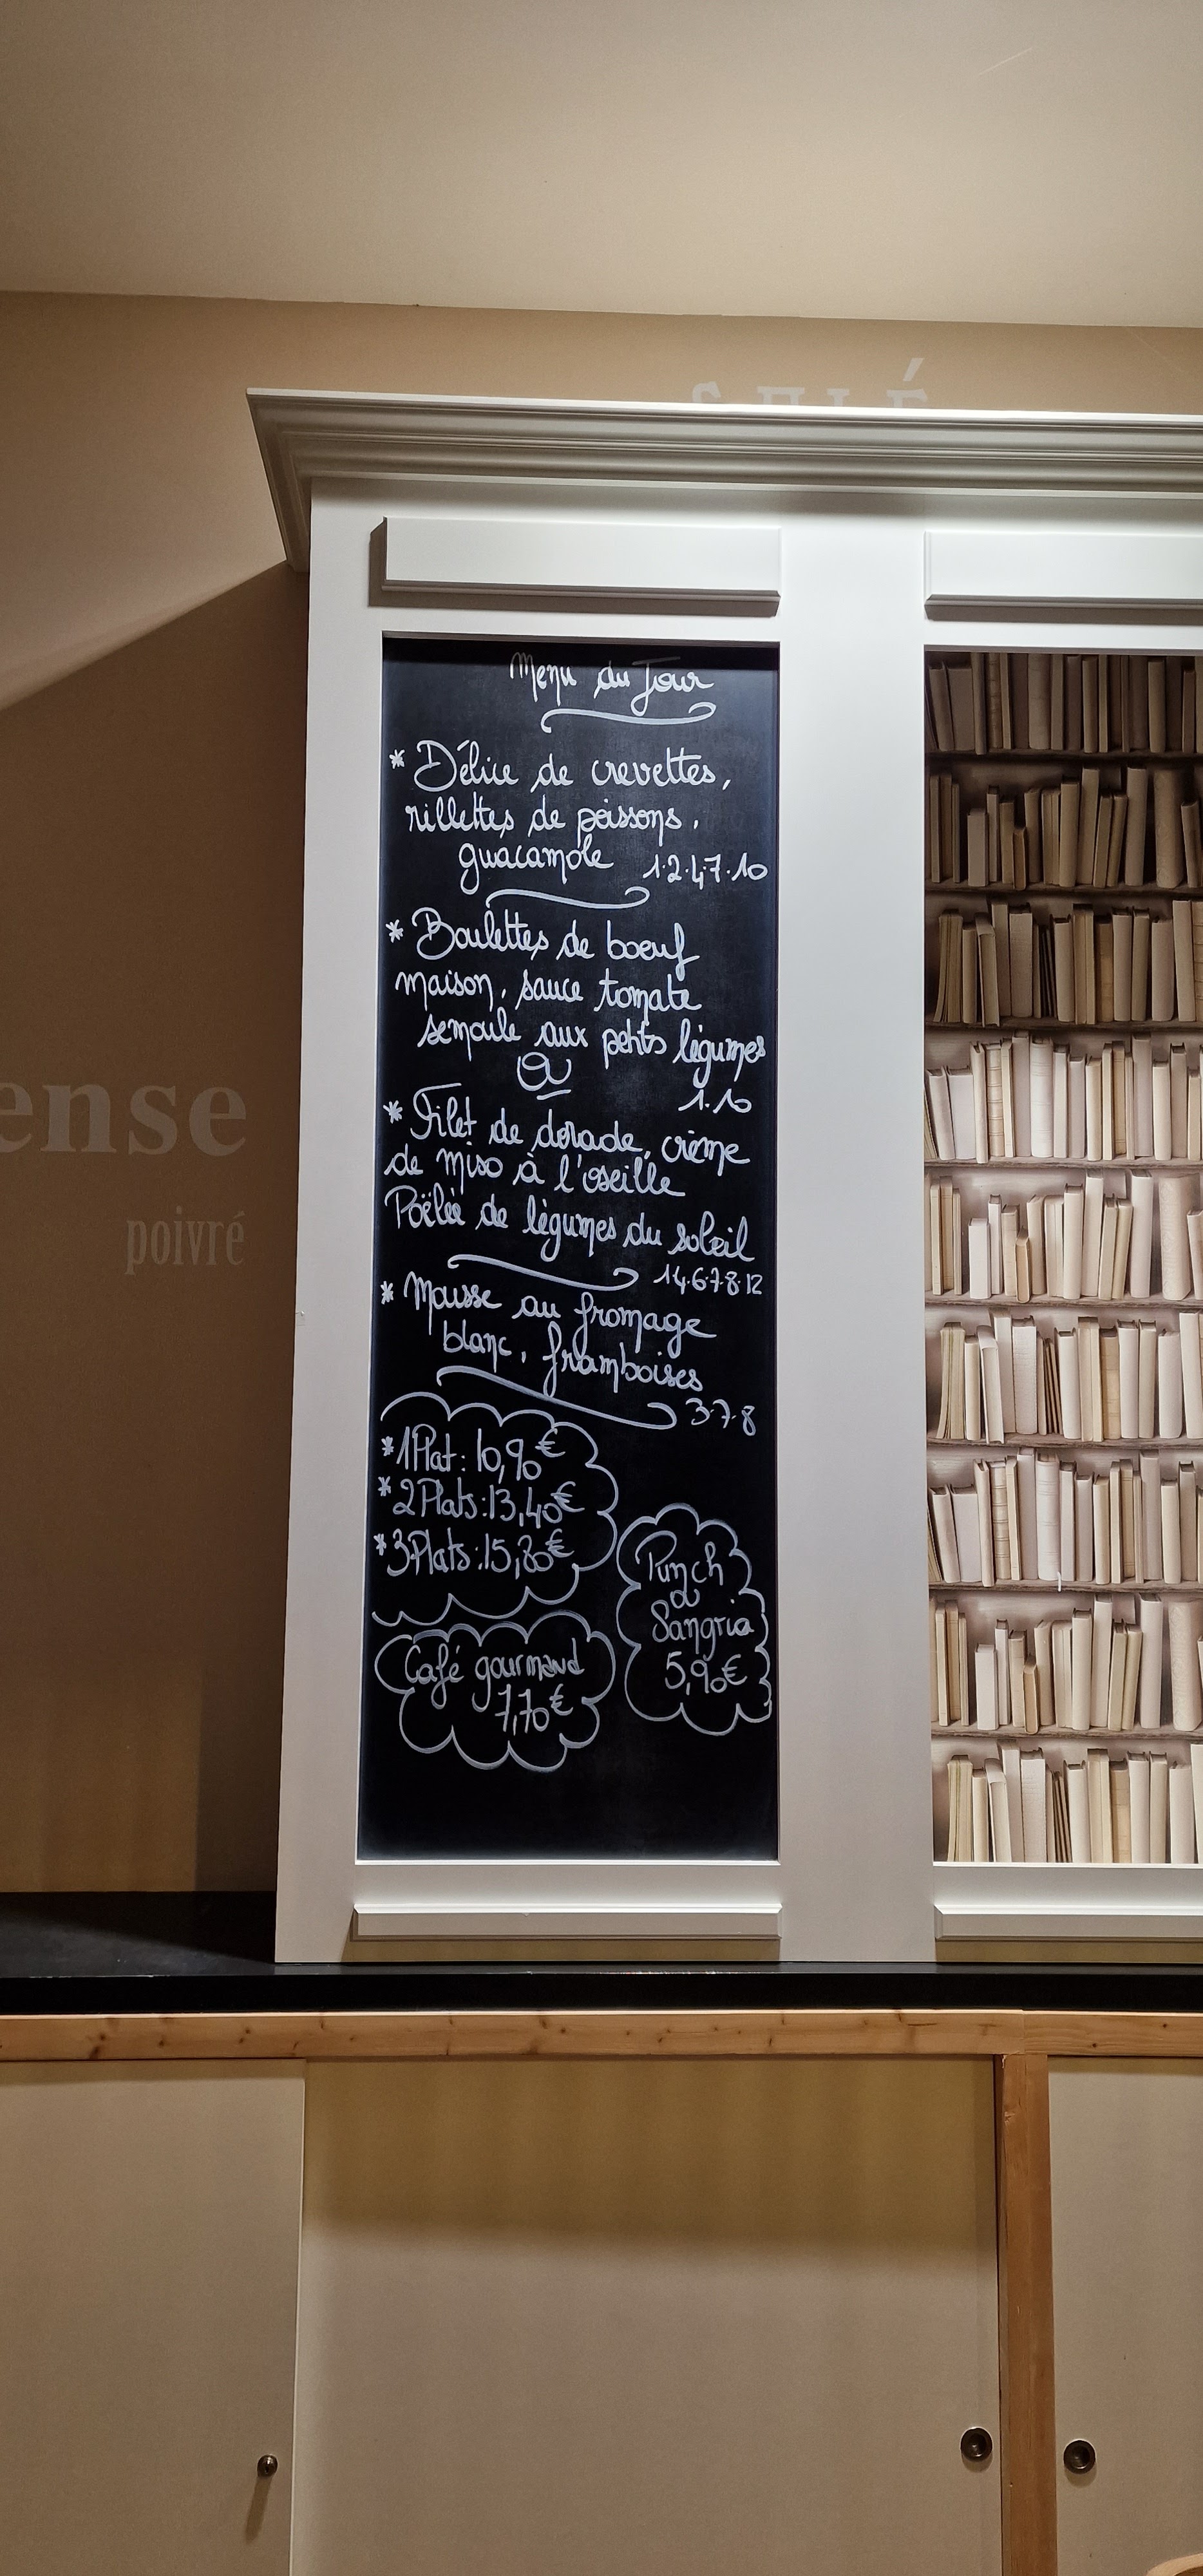 SALÉ
ense
poivré
Menu du Jour
* Délice de crevettes,
rillettes de poissons,
guacamole 1.2.4.7.10
* Boulettes de boeuf
maison, sauce tomate
semoule aux petits légumes
Ou
1.10
* Filet de dorade, crème
de miso à l'oseille
Poëlée de légumes du soleil
1.4.6.7.8.12
* Mousse au fromage
blanc, framboises
3.7.8
*1 Plat : 10,90€
*2 Plats : 13,40€
*3 Plats : 15,80€
Punch
ou
Sangria
5,90€
Café gourmand
7,70€